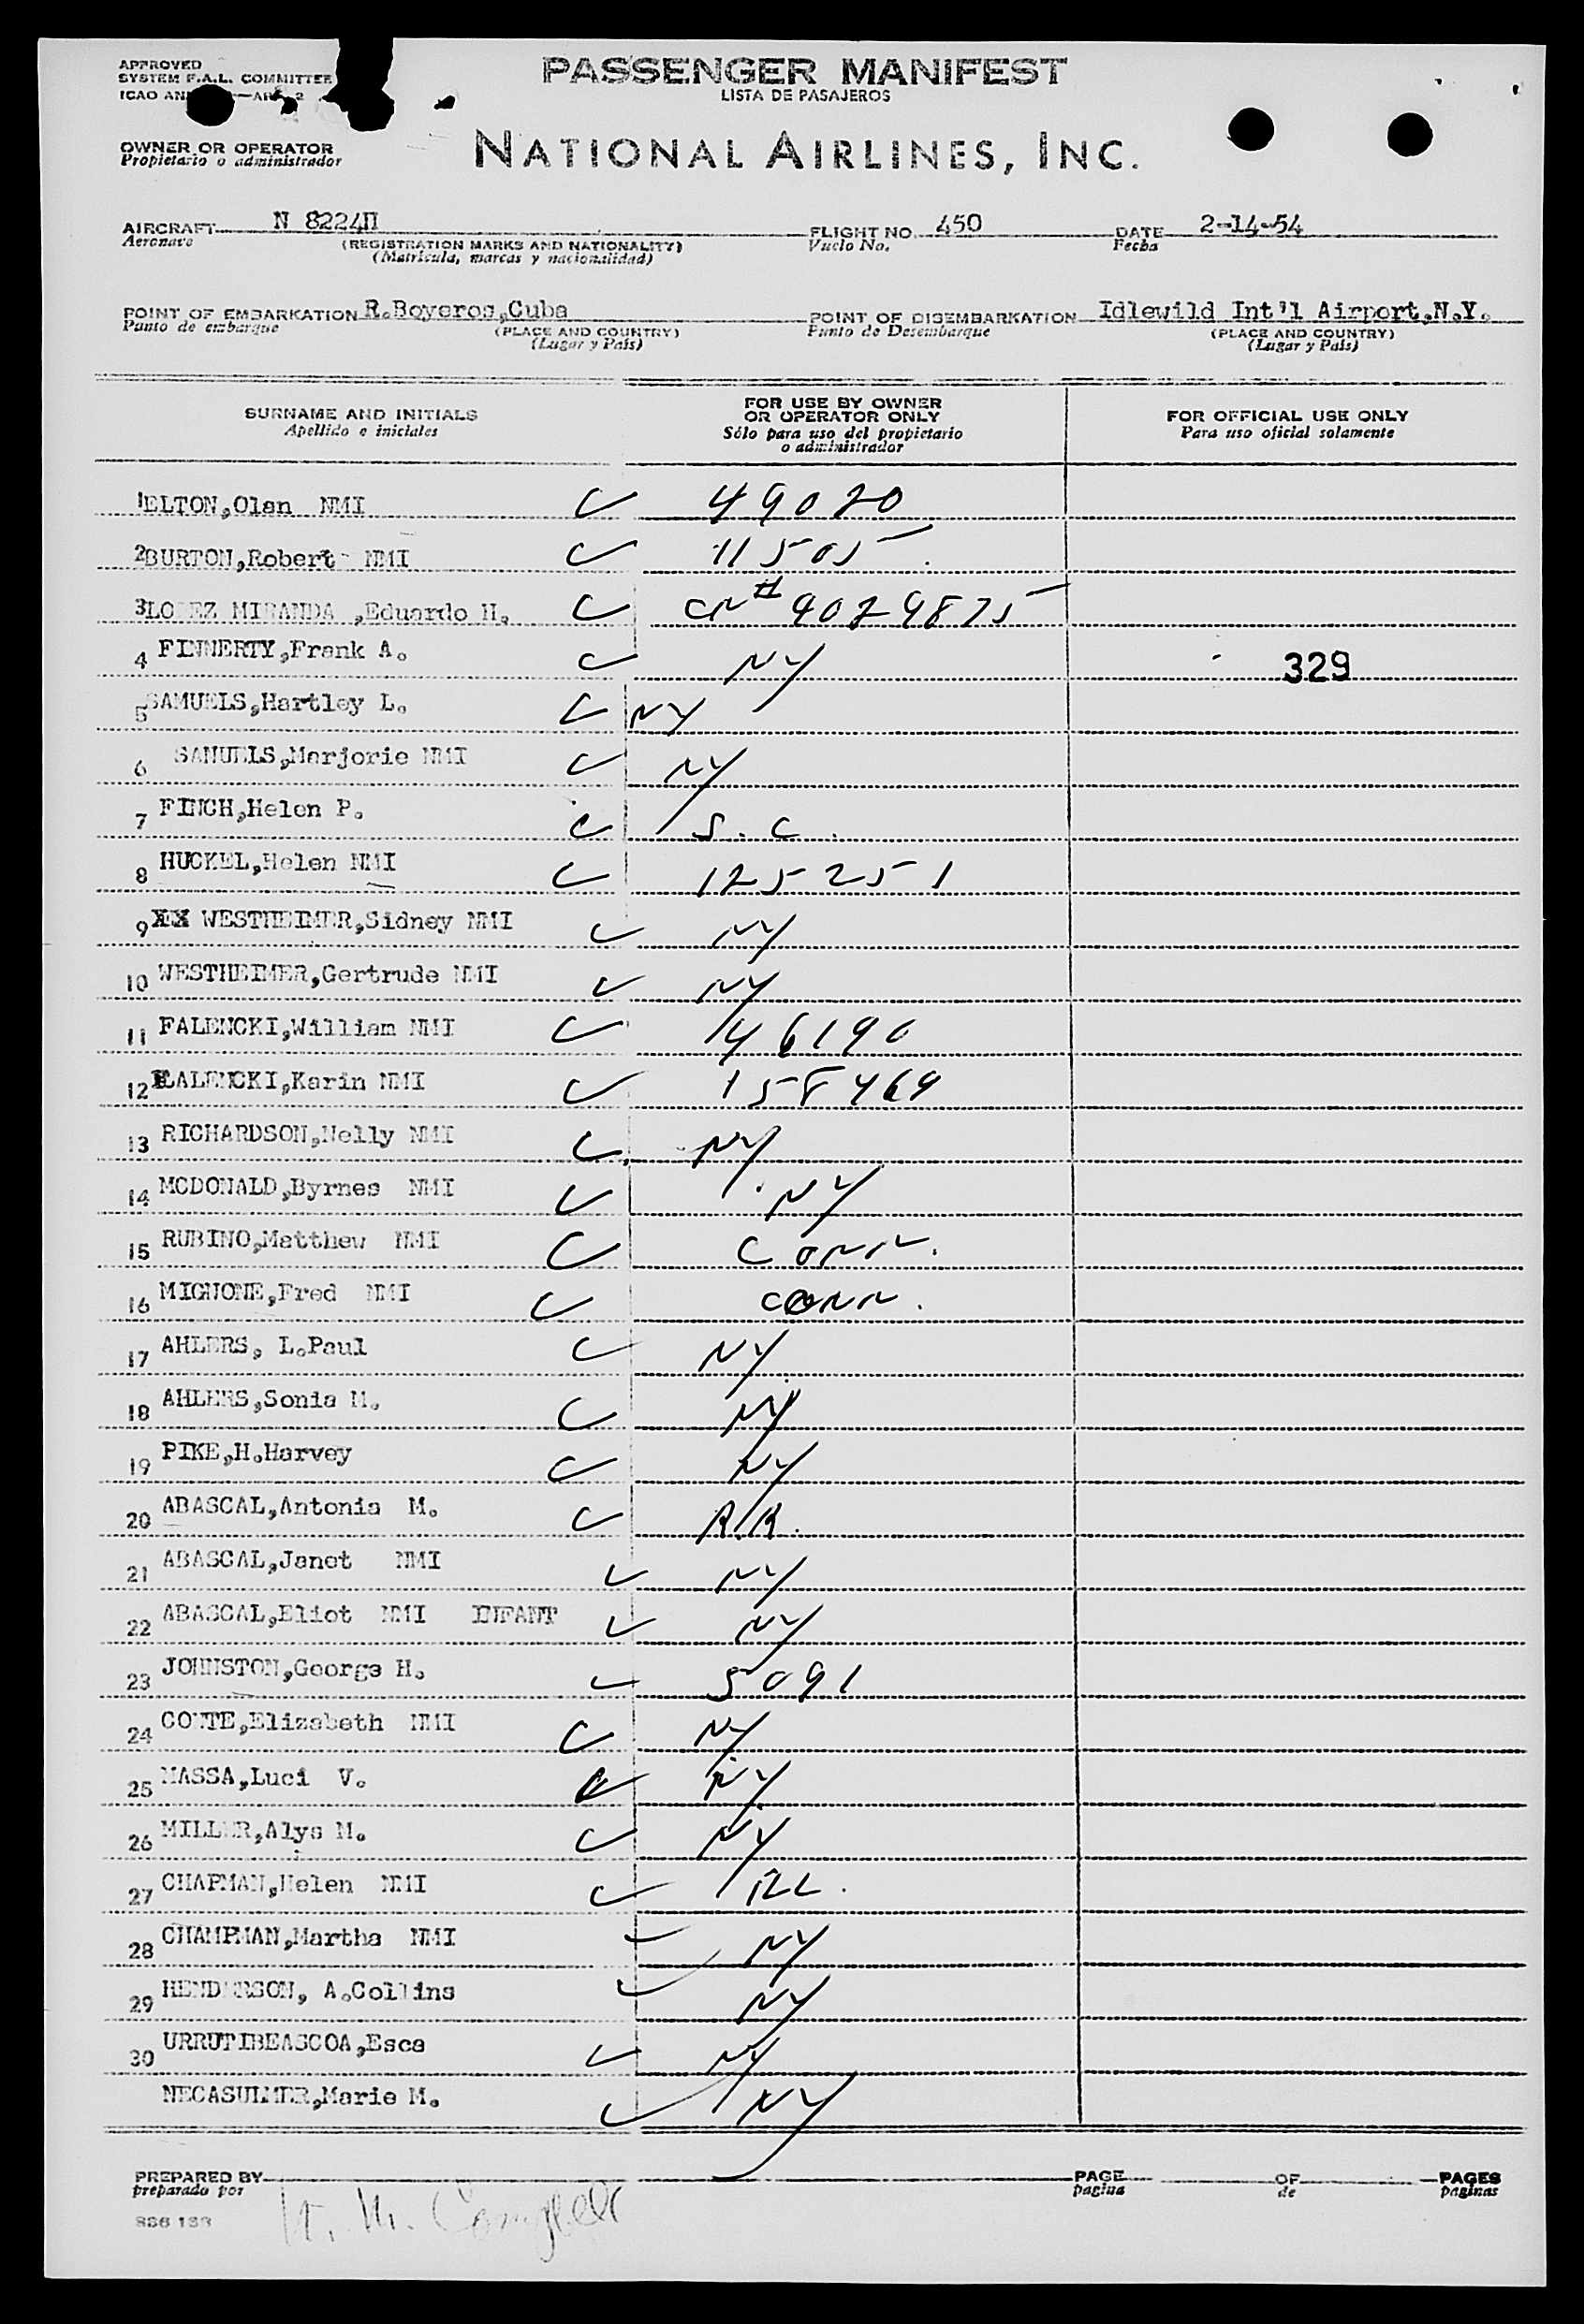 APPROVED
SYSTEM F.A.L. COMMITTEE
ICAO
PASSENGER MANIFEST
LISTA DE PASAJEROS
OWNER OR OPERATOR
Propietario o administrador
NATIONAL AIRLINES, INC.
AIRCRAFT N 8224H FLIGHT NO. 450 DATE 2-14-54
Aeronave (REGISTRATION MARKS AND NATIONALITY) Vuelo No. Fecha
(Matricula, marcas y nacionalidad)
POINT OF EMBARKATION R.Boyeros,Cuba POINT OF DISEMBARKATION Idlewild Int'l Airport,N.Y.
Punto de embarque (PLACE AND COUNTRY) Punto de Desembarque (PLACE AND COUNTRY)
(Lugar y País) (Lugar y País)
SURNAME AND INITIALS
Apellido e iniciales
FOR USE BY OWNER
OR OPERATOR ONLY
Sólo para uso del propietario
o administrador
FOR OFFICIAL USE ONLY
Para uso oficial solamente
1 ELTON,Olan NMI 49020
2 BURTON,Robert NMI 11505
3 LOPEZ MIRANDA ,Eduardo H. CN# 9029875
4 FINNERTY,Frank A. NY 329
5 SAMUELS,Hartley L. NY
6 SAMUELS,Marjorie NMI NY
7 FINCH,Helen P. S.C.
8 HUCKEL,Helen NMI 125251
9 XX WESTHEIMER,Sidney NMI NY
10 WESTHEIMER,Gertrude NMI NY
11 FALENCKI,William NMI 46190
12 FALENCKI,Karin NMI 158469
13 RICHARDSON,Nelly NMI NY
14 MCDONALD,Byrnes NMI NY
15 RUBINO,Matthew NMI CONN.
16 MIGNONE,Fred NMI CONN.
17 AHLERS, L.Paul NY
18 AHLERS,Sonia M. NY
19 PIKE,H.Harvey NY
20 ABASCAL,Antonia M.
21 ABASCAL,Janet NMI NY
22 ABASCAL,Eliot NMI INFANT NY
23 JOHNSTON,George H. 5091
24 CONTE,Elizabeth NMI NY
25 MASSA,Luci V. NY
26 MILLER,Alys M. NY
27 CHAPMAN,Helen NMI ILL.
28 CHAMPMAN,Martha NMI NY
29 HENDERSON, A.Collins NY
30 URRUTIBEASCOA,Esca NY
NECASULMER,Marie M. NY
PREPARED BY PAGE OF PAGES
preparado por pagina de paginas